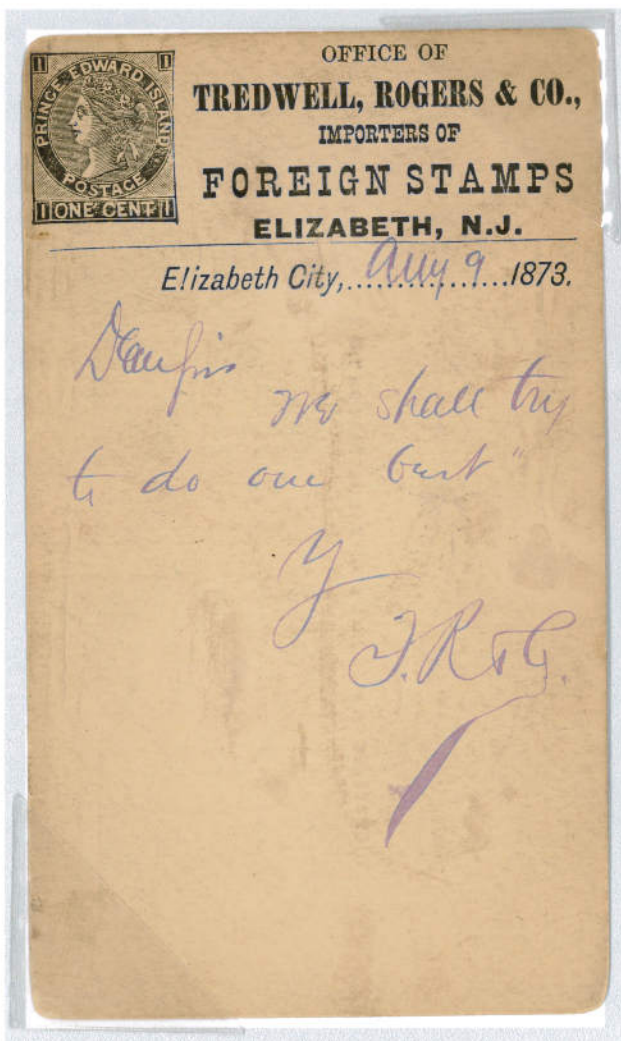 1 1
PRINCE EDWARD ISLAND
POSTAGE
1 ONE CENT 1
OFFICE OF
TREDWELL, ROGERS & CO.,
IMPORTERS OF
FOREIGN STAMPS
ELIZABETH, N.J.
Elizabeth City, Aug 9 1873.
Dear Sirs
We shall try
to do our best"
Y
T. R & C.